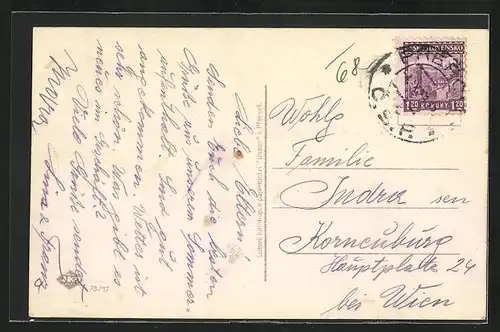 Liebe Eltern!
Senden Euch die besten
Grüße aus unserem Sommer-
aufenthalt. Sind gut
angekommen. Wetter ist
sehr schön. Was gibt es
neues im Geschäft?
Viele Grüße sendet
73/17
68
ČESKOSLOVENSKO
1.20 KORUNY 1.20
Wohlg
Familie
Indra sen
Korneuburg
Hauptplatz 24
bei Wien